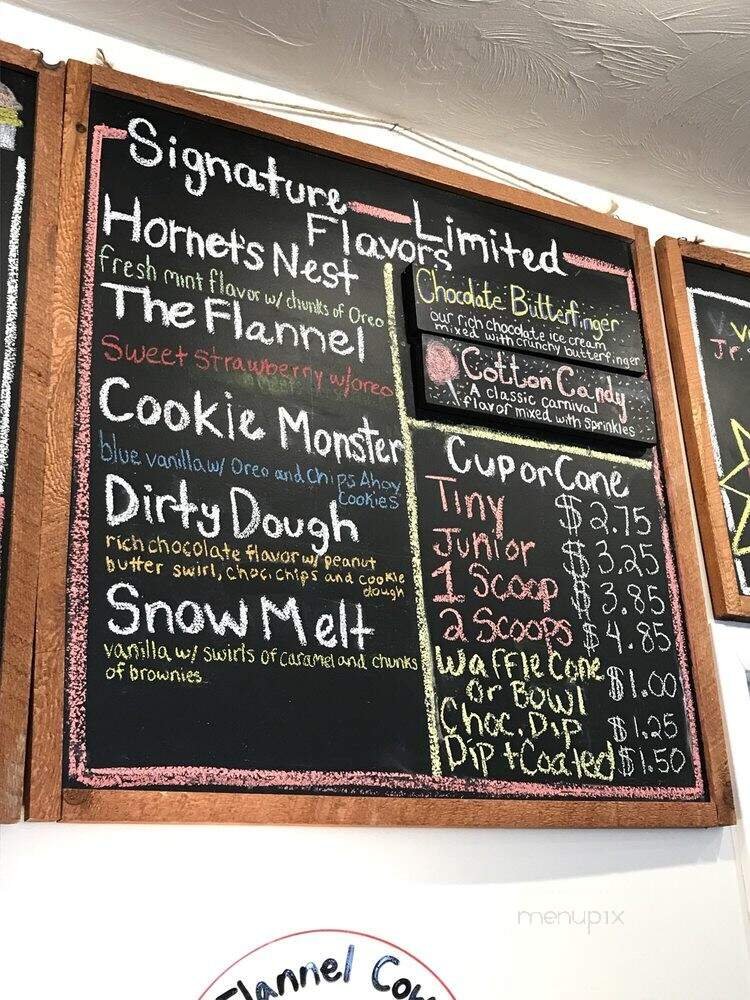 Signature
Flavors
Hornet's Nest
fresh mint flavor w/ chunks of Oreo
The Flannel
Sweet Strawberry w/oreo
Cookie Monster
blue vanilla w/ Oreo and Chips Ahoy
cookies
Dirty Dough
rich chocolate flavor w/ peanut
butter swirl, choc. chips and cookie
dough
Snow Melt
vanilla w/ swirls of caramel and chunks
of brownies
Limited
Chocolate Butterfinger
our rich chocolate ice cream
mixed with crunchy butterfinger
Cotton Candy
A classic carnival
flavor mixed with sprinkles
Cup or Cone
Tiny $2.75
Junior $3.25
1 Scoop $3.85
2 Scoops $4.85
Waffle Cone
or Bowl $1.00
Choc. Dip $1.25
Dip + Coated $1.50
Jr.
menupix
Flannel